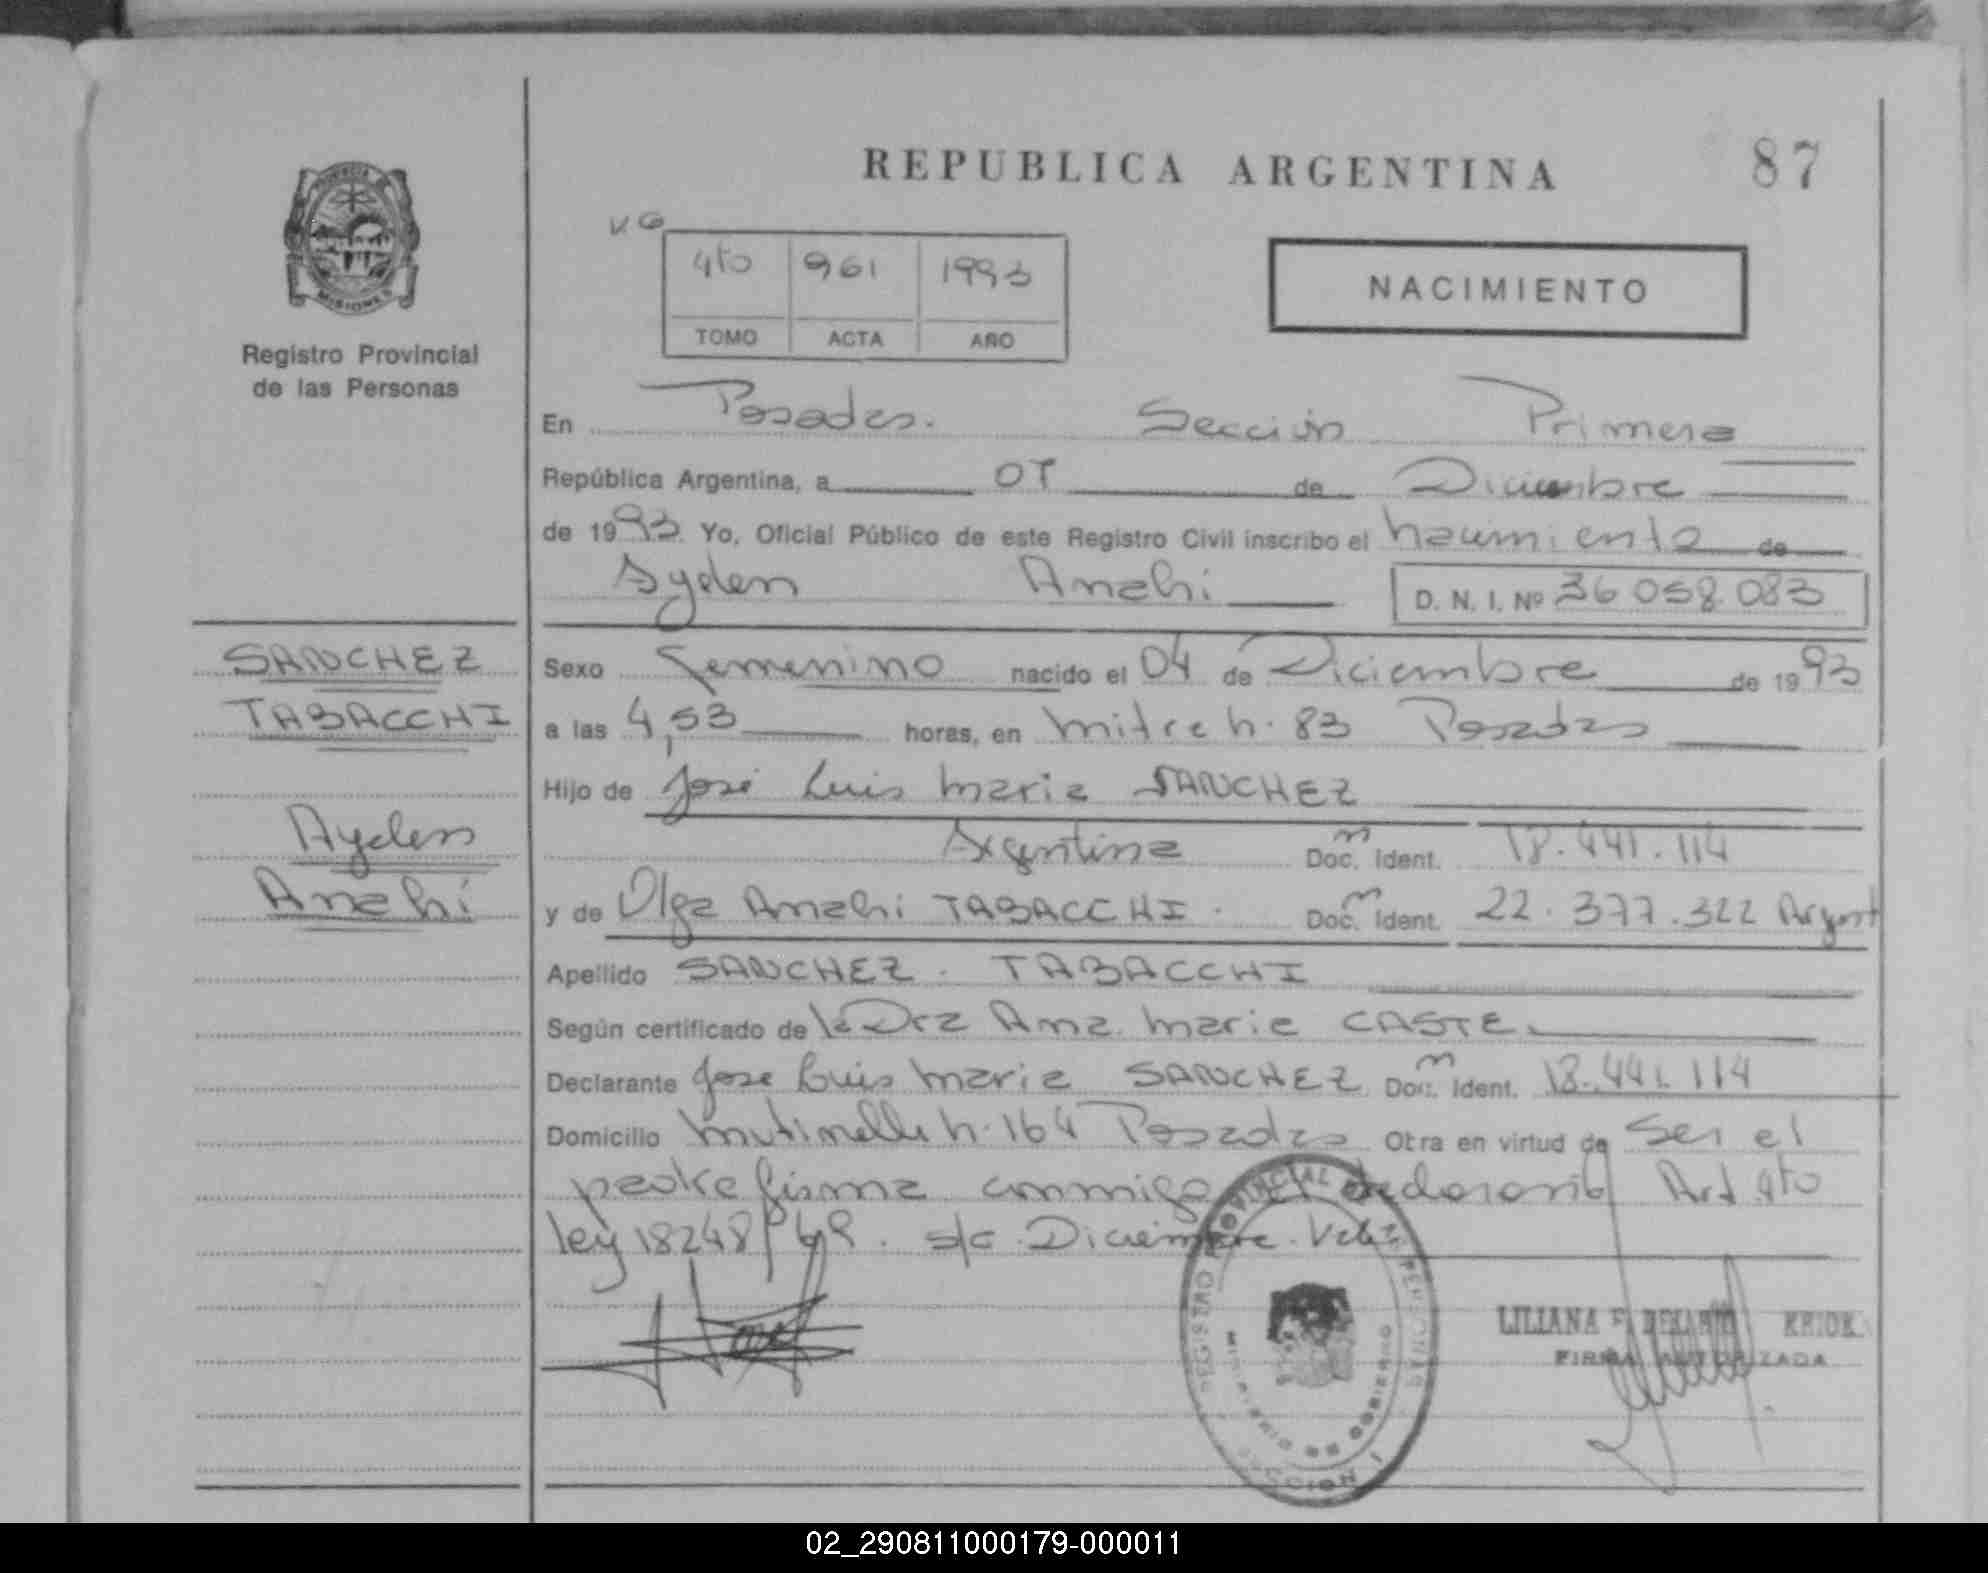 REPUBLICA ARGENTINA
87
PROVINCIA DE
MISIONES
Registro Provincial
de las Personas
V.G
4to 961 1993
TOMO ACTA AÑO
NACIMIENTO
En Posadas. Sección Primera
República Argentina, a 07 de Diciembre
de 1993 Yo, Oficial Público de este Registro Civil inscribo el nacimiento de
Ayelen Anahi D. N. I. Nº 36 058 083
SANCHEZ
TABACCHI
Ayelen
Anahi
Sexo Femenino nacido el 04 de Diciembre de 1993
a las 4,53 horas, en Mitre n. 83 Posadas
Hijo de José Luis Maria SANCHEZ
Argentina Doc. Ident. 18.441.114
y de Olga Anahi TABACCHI. Doc. Ident. 22.377.322 Argent
Apellido SANCHEZ. TABACCHI
Según certificado de la Dra Ana Maria CASTE.
Declarante Jose Luis Maria SANCHEZ Doc. Ident. 18.441.114
Domicilio n. 164 Posadas Otra en virtud de Ser el
padre firma conmigo el declarante Art 4to
ley 18248/69. s/c Diciembre. Vale
REGISTRO PROVINCIAL DE LAS PERSONAS
MINISTERIO DE GOBIERNO
SECCION I
LILIANA F.
FIRMA AUTORIZADA
02_290811000179-000011